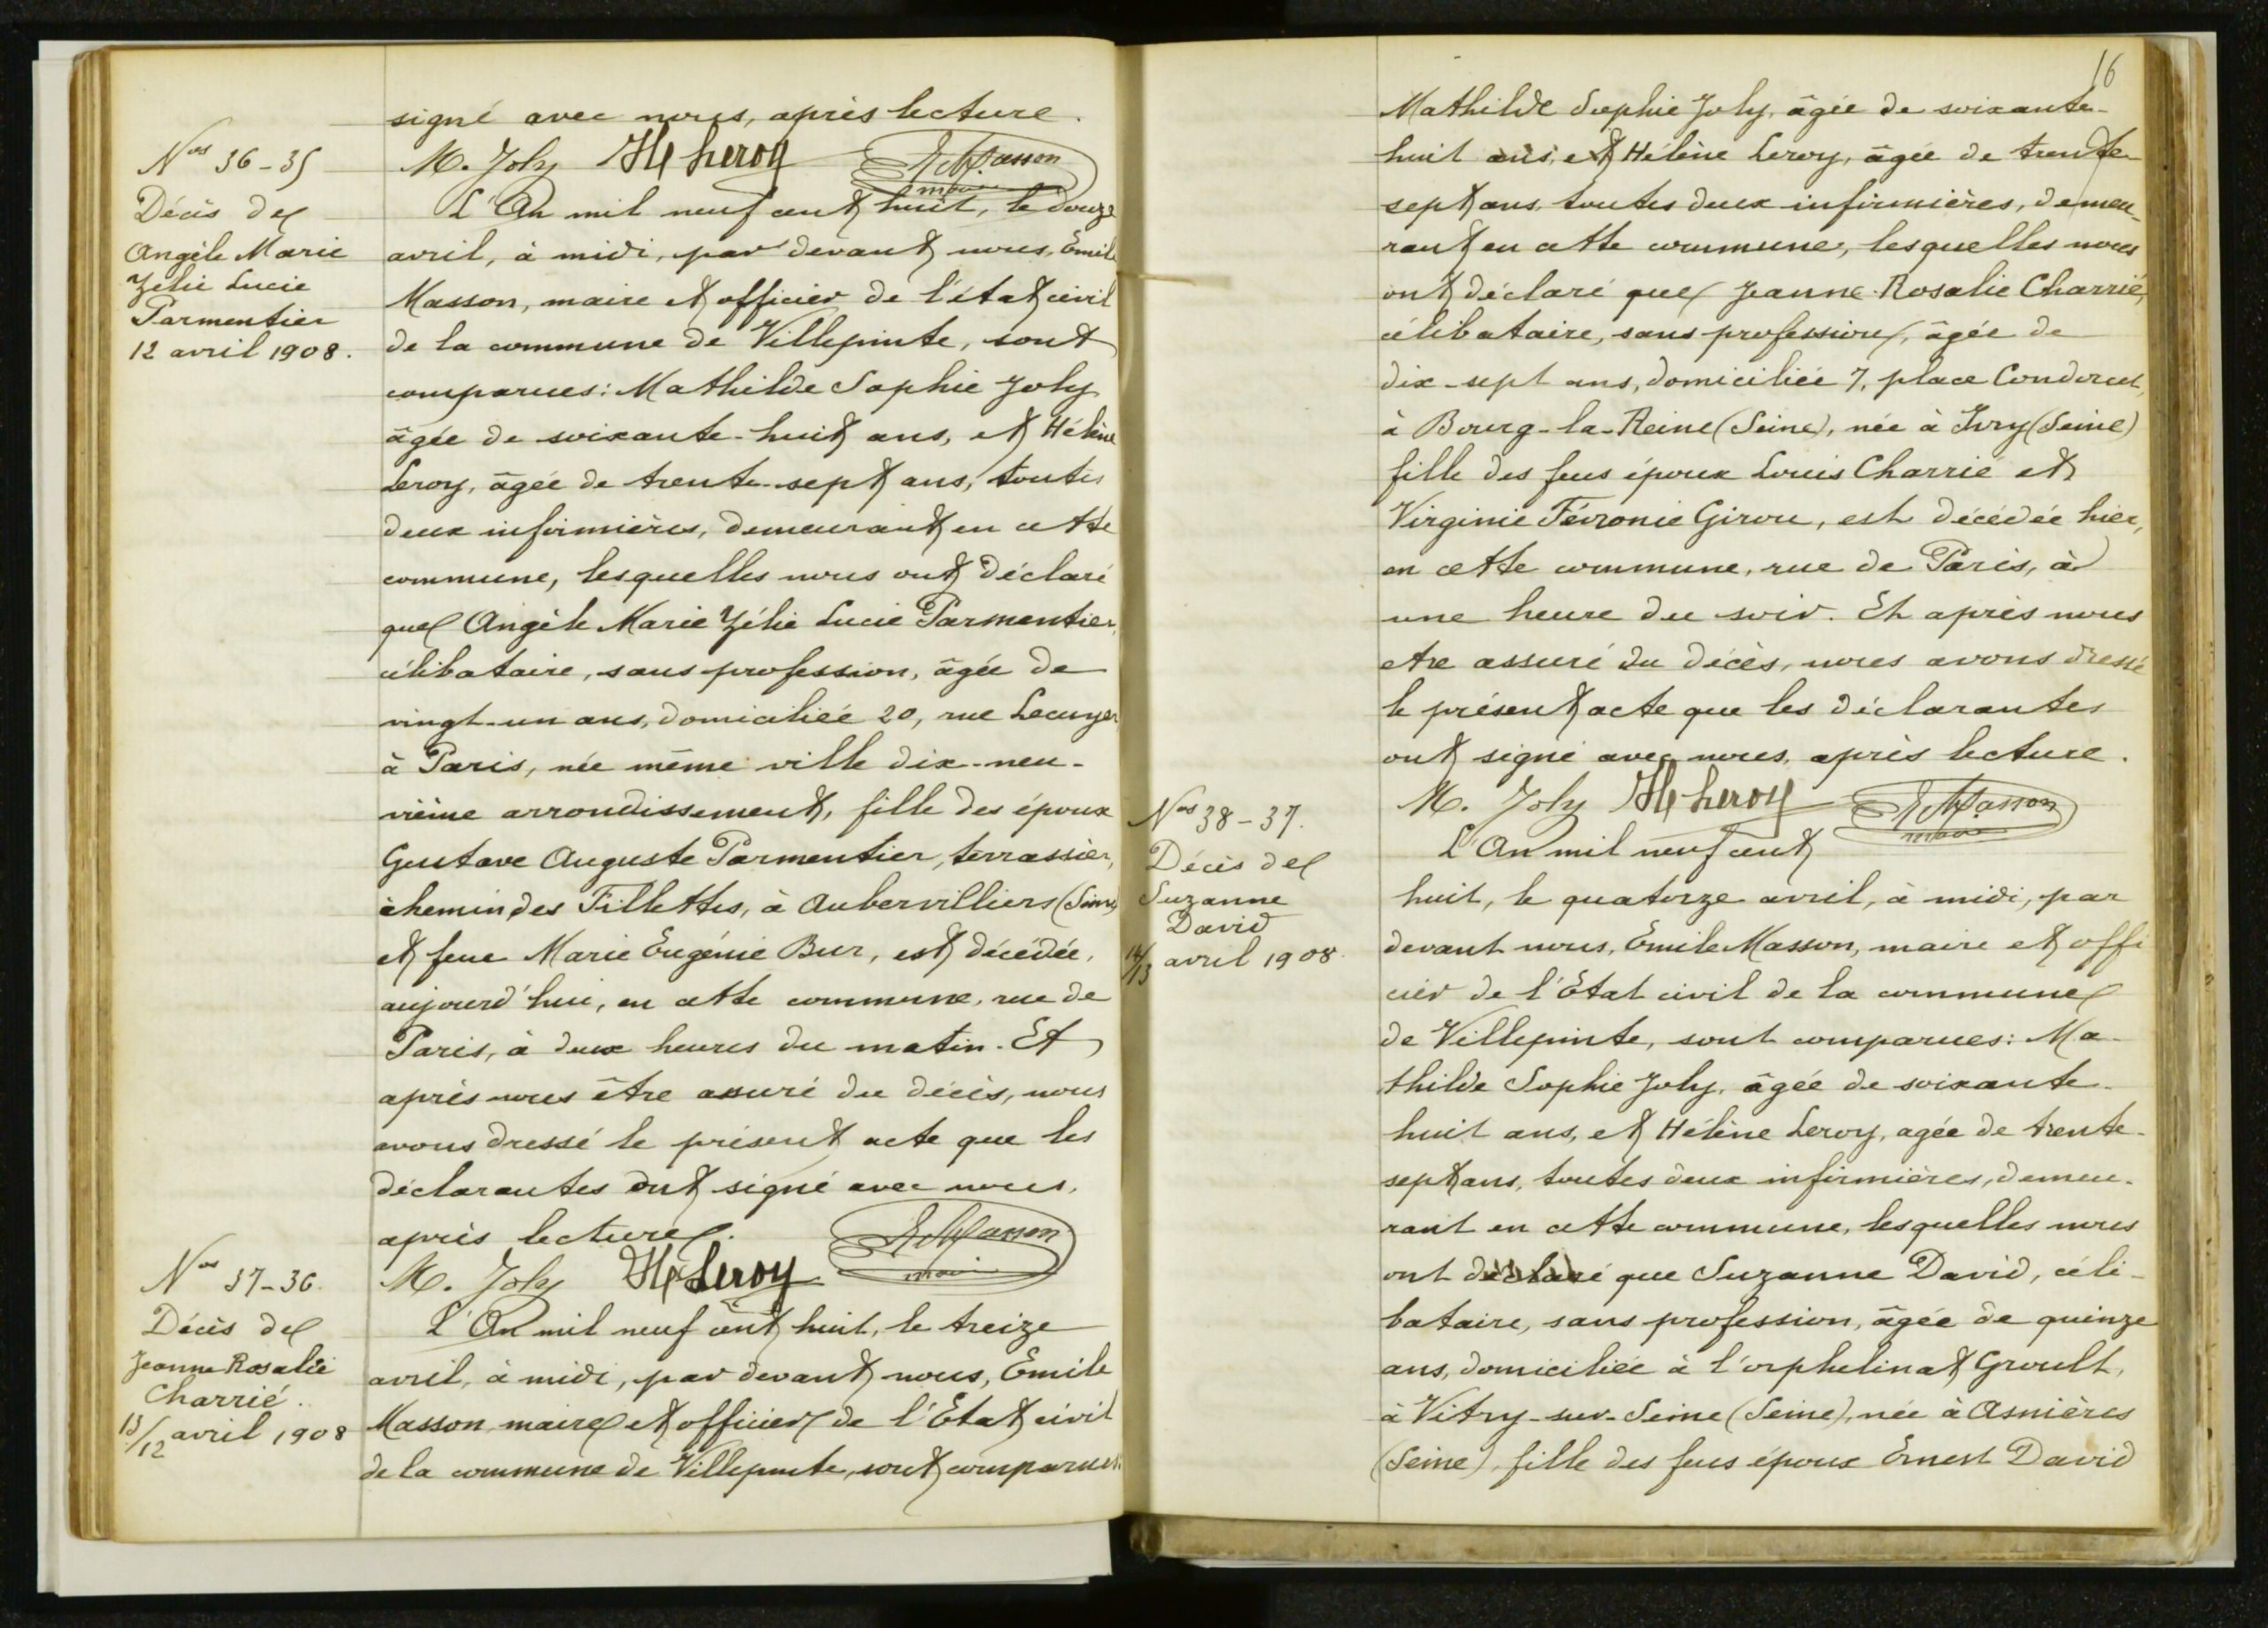 signé avec nous, après lecture.
Nos 36-35
M. Joly He Leroy E Masson
maire
Décès de
Angèle Marie
Zélie Lucie
Parmentier
12 avril 1908.
L'An mil neuf cent huit, le douze
avril, à midi, par devant nous, Emile
Masson, maire et officier de l'état civil
de la commune de Villepinte, sont
comparues: Mathilde Sophie Joly
âgée de soixante-huit ans, et Hélène
Leroy, âgée de trente-sept ans, toutes
deux infirmières, demeurant en cette
commune, lesquelles nous ont déclaré
que Angèle Marie Zélie Lucie Parmentier,
célibataire, sans profession, âgée de
vingt-un ans, domiciliée 20, rue Lecuyer
à Paris, née même ville dix-neu-
vième arrondissement, fille des époux
Gustave Auguste Parmentier, terrassier,
chemin des Fillettes, à Aubervilliers (Seine)
et feue Marie Eugénie Bur, est décédée,
aujourd'hui, en cette commune, rue de
Paris, à deux heures du matin. Et
après nous être assuré du décès, nous
avons dressé le présent acte que les
déclarantes ont signé avec nous,
après lecture.
M. Joly He Leroy E Masson
maire
Nos 37-36.
Décès de
Jeanne Rosalie
Charrié.
13/12 avril 1908
L'An mil neuf cent huit, le treize
avril, à midi, par devant nous, Emile
Masson maire et officier de l'Etat civil
de la commune de Villepinte, sont comparues
16
Mathilde Sophie Joly, âgée de soixante-
huit ans, et Hélène Leroy, âgée de trente-
sept ans, toutes deux infirmières, demeu-
rant en cette commune, lesquelles nous
ont déclaré que Jeanne Rosalie Charrié,
célibataire, sans profession, âgée de
dix-sept ans, domiciliée 7, place Condorcet,
à Bourg-la-Reine (Seine), née à Ivry (Seine)
fille des feus époux Louis Charrié et
Virginie Févronie Girou, est décédée hier,
en cette commune, rue de Paris, à
une heure du soir. Et après nous
etre assuré du décès, nous avons dressé
le présent acte que les déclarantes
ont signé avec nous, après lecture.
M. Joly He Leroy E Masson
maire
Nos 38-37.
Décès de
Suzanne
David
14/13 avril 1908.
L'An mil neuf cent
huit, le quatorze avril, à midi, par
devant nous, Emile Masson, maire et offi
cier de l'Etat civil de la commune
de Villepinte, sont comparues: Ma-
thilde Sophie Joly, âgée de soixante-
huit ans, et Hélène Leroy, agée de trente-
sept ans, toutes deux infirmières, demeu-
rant en cette commune, lesquelles nous
ont déclaré que Suzanne David, céli-
bataire, sans profession, âgée de quinze
ans, domiciliée à l'orphelinat Groult,
à Vitry-sur-Seine (Seine), née à Asnières
(Seine), fille des feus époux Ernest David